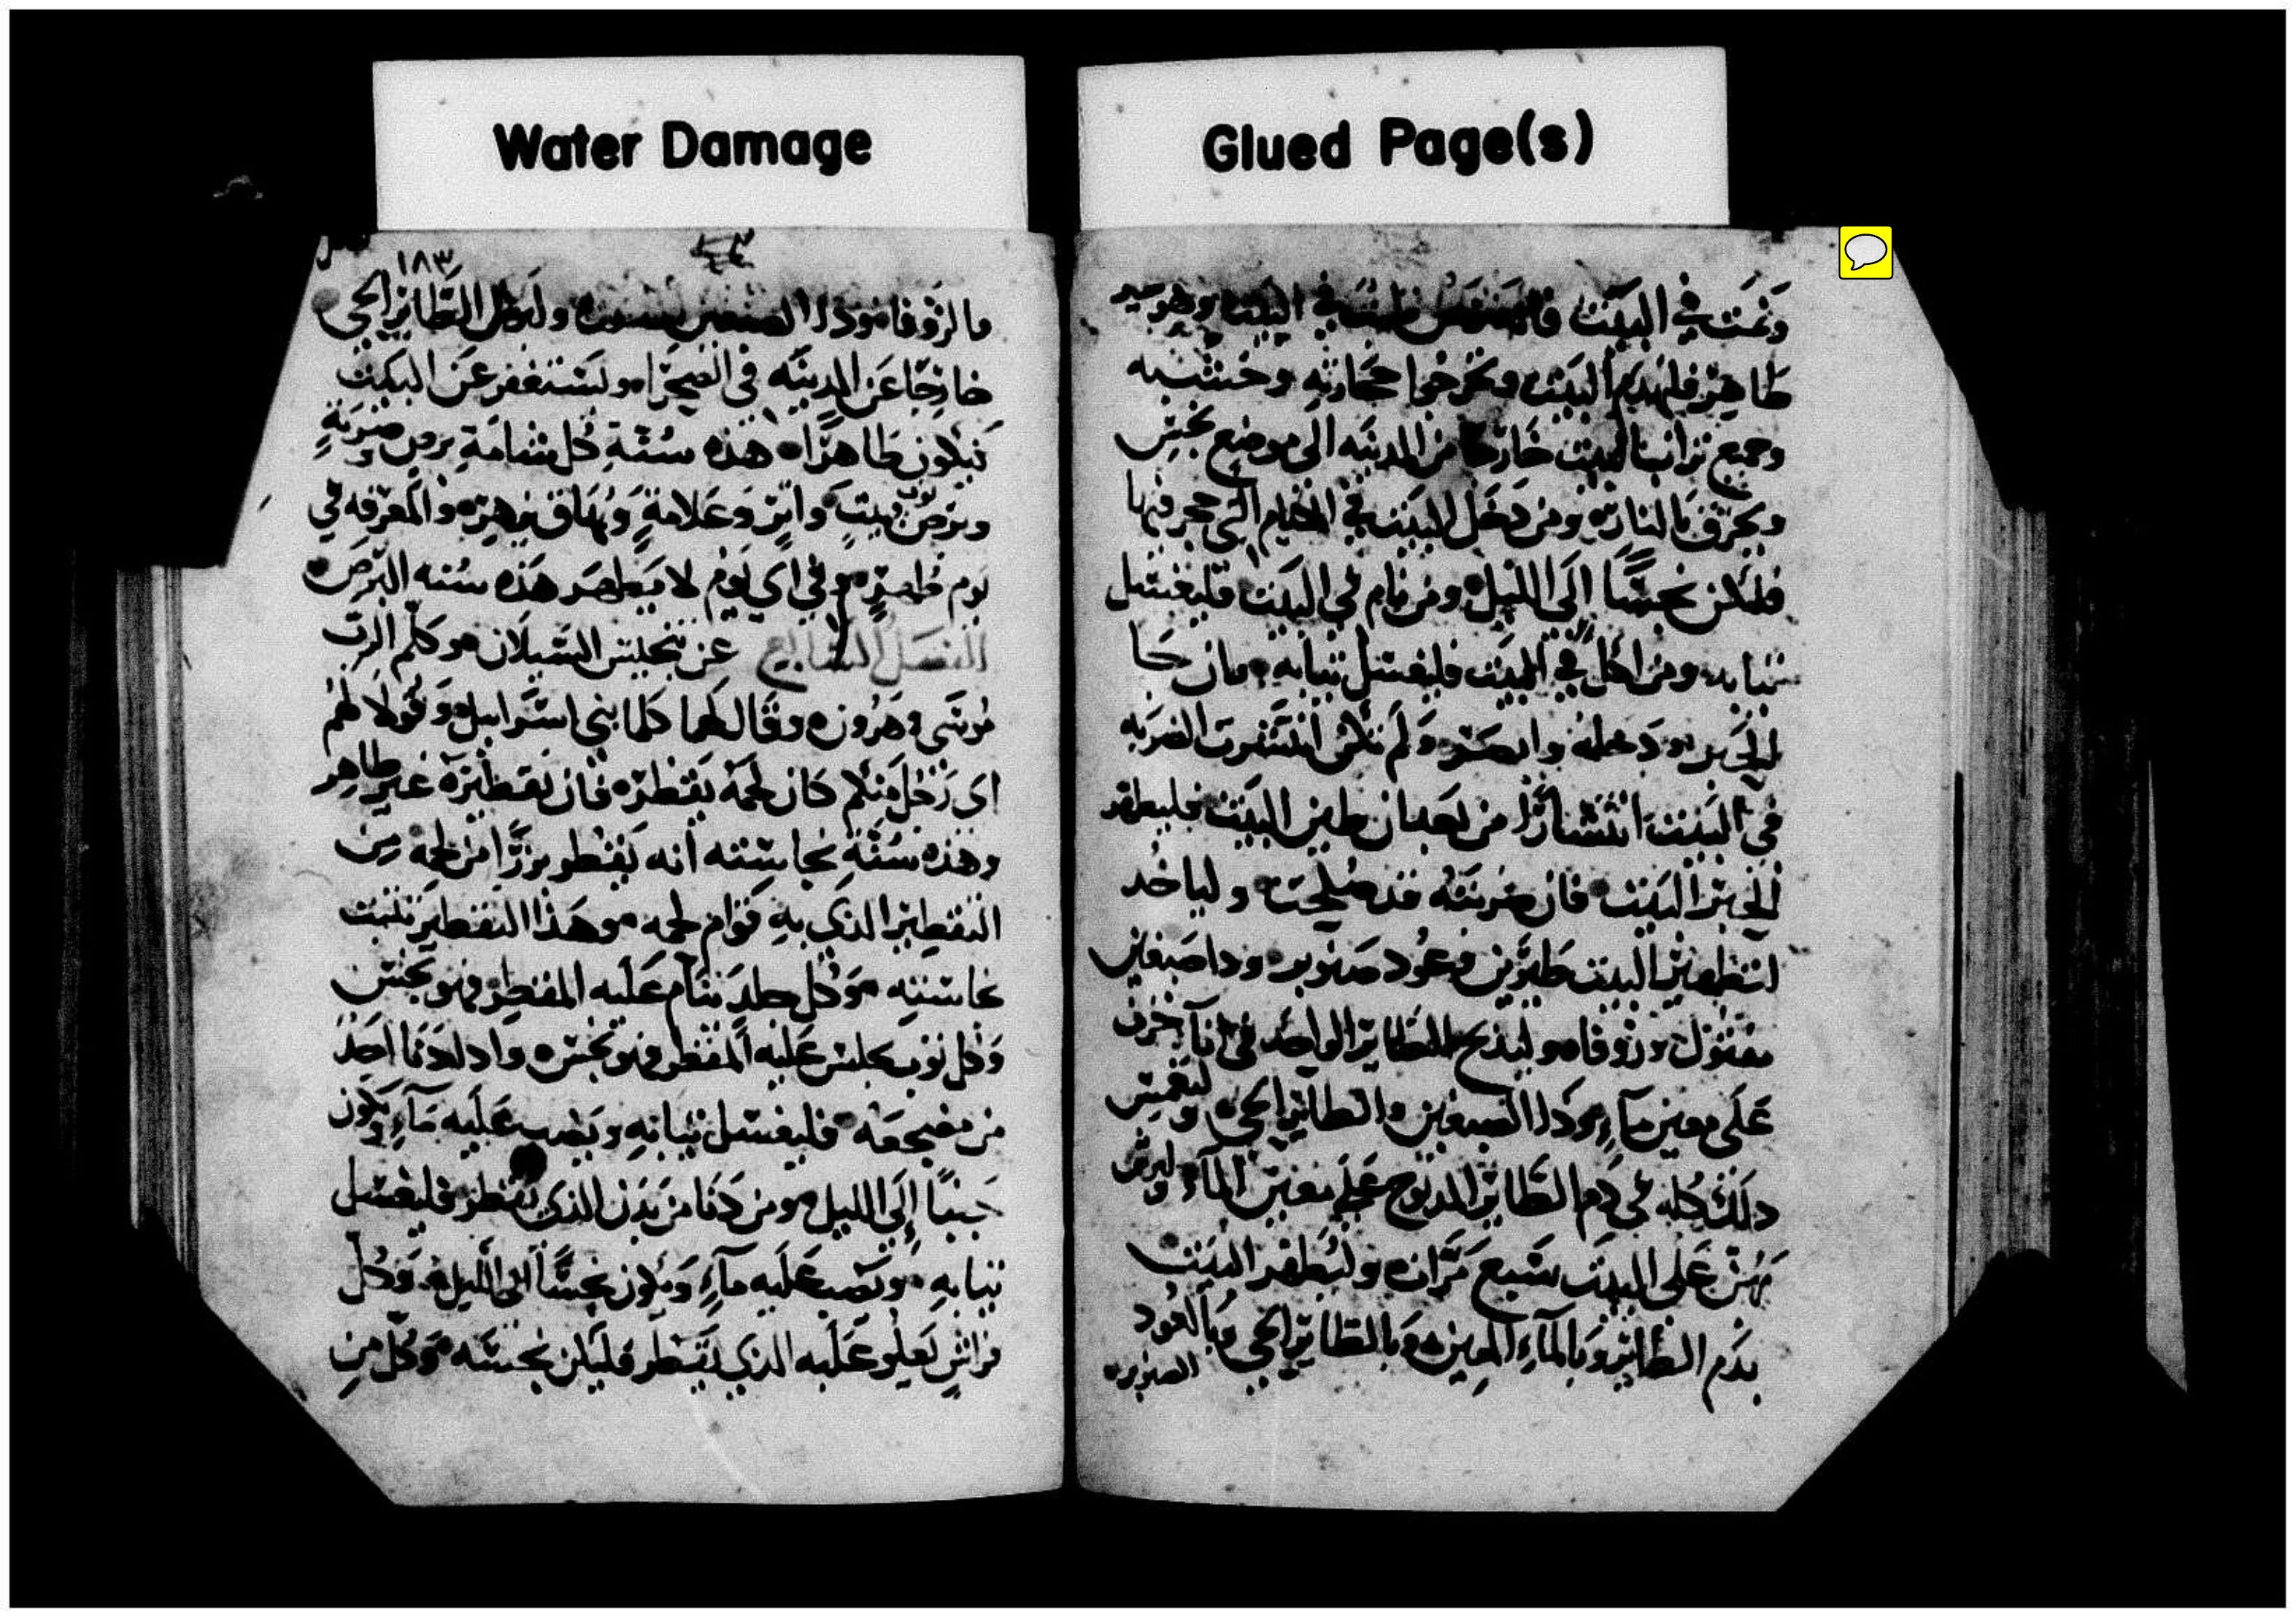 Water Damage
Glued Page(s)
ونمت في البيت في البيت وهو
طاهر فليهدم البيت ويخرجوا حجارته وخشبه
وجميع تراب البيت خارجًا من المدينه الى موضع نجس
ويحرق بالنار ومن دخل البيت في الايام التي حجر فيها
فليكن نجسًا الى الليل ومن نام في البيت فليغسل
ثيابه ومن اكل في البيت فليغسل ثيابه وان جا
الحبر ودخله وابصر ولم تكن انتشرت الضربه
في البيت انتشارًا من بعد ان طين البيت فليطهر
الحبر البيت فان ضربته قد صلحت ولياخد
لتطهير البيت طيرين وعود صنوبر ودا صبغين
مفتول وزوفا وليدبح الطاير الواحد في انآ خزف
على معين مآءٍ ودا الصبغين والطاير الحي وليغمس
دلك كله في دم الطاير المدبوح على معين المآء وليرش
بهن على البيت سبع مرات وليطهر البيت
بدم الطاير وبالمآءِ المعين وبالطاير الحي وبالعود
الصنوبر
١٨٣
مالزوفا ودا الصبغين وليرسل الطاير الحي
خارجًا عن المدينه في الصحرا وليستغفر عن البيت
فيكون طاهرًا هذه سُنة كل شامة برص ضربةٍ
وبرص بيت واثر وعلامةٍ وبهاق زهره والمعرفه في
يوم طهره وفي اي يوم لا يطهر هذه سنه البرص
الفصل السابع عن تنجيس السيلان وكلم الرب
موسى وهرون وقال لهما كلما بني اسراييل وقولا لهم
اي رجل منكم كان لحمه يقطر فان تقطيره غير طاهر
وهذه سنة نجاسته انه يقطر بزرًا من لحمه من
التقطير الذي به قوام لحمه وهذا التقطير تثبت
نجاسته وكل جلد ينام عليه المقطر فهو نجس
وكل ثوب يجلس عليه المقطر فهو نجس واد لدنا احد
من مضجعه فليغسل ثيابه ويصب عليه مآءٍ ويكون
جنبًا إلى الليل ومن دنا من بدن الذي يقطر فليغسل
ثيابه ويصب عليه مآءٍ ويكون نجسًا الى الليل وكل
فراش يعلو عليه الذي يقطر فليكن نجسه وكل من